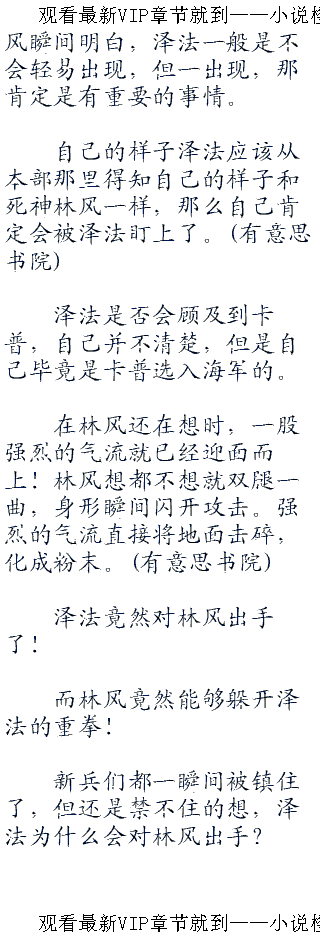 观看最新VIP章节就到——小说
风瞬间明白，泽法一般是不
会轻易出现，但一出现，那
肯定是有重要的事情。
自己的样子泽法应该从
本部那里得知自己的样子和
死神林风一样，那么自己肯
定会被泽法盯上了。(有意思
书院)
泽法是否会顾及到卡
普，自己并不清楚，但是自
己毕竟是卡普选入海军的。
在林风还在想时，一股
强烈的气流就已经迎面而
上！林风想都不想就双腿一
曲，身形瞬间闪开攻击。强
烈的气流直接将地面击碎，
化成粉末。(有意思书院)
泽法竟然对林风出手
了！
而林风竟然能够躲开泽
法的重拳！
新兵们都一瞬间被镇住
了，但还是禁不住的想，泽
法为什么会对林风出手？
观看最新VIP章节就到——小说